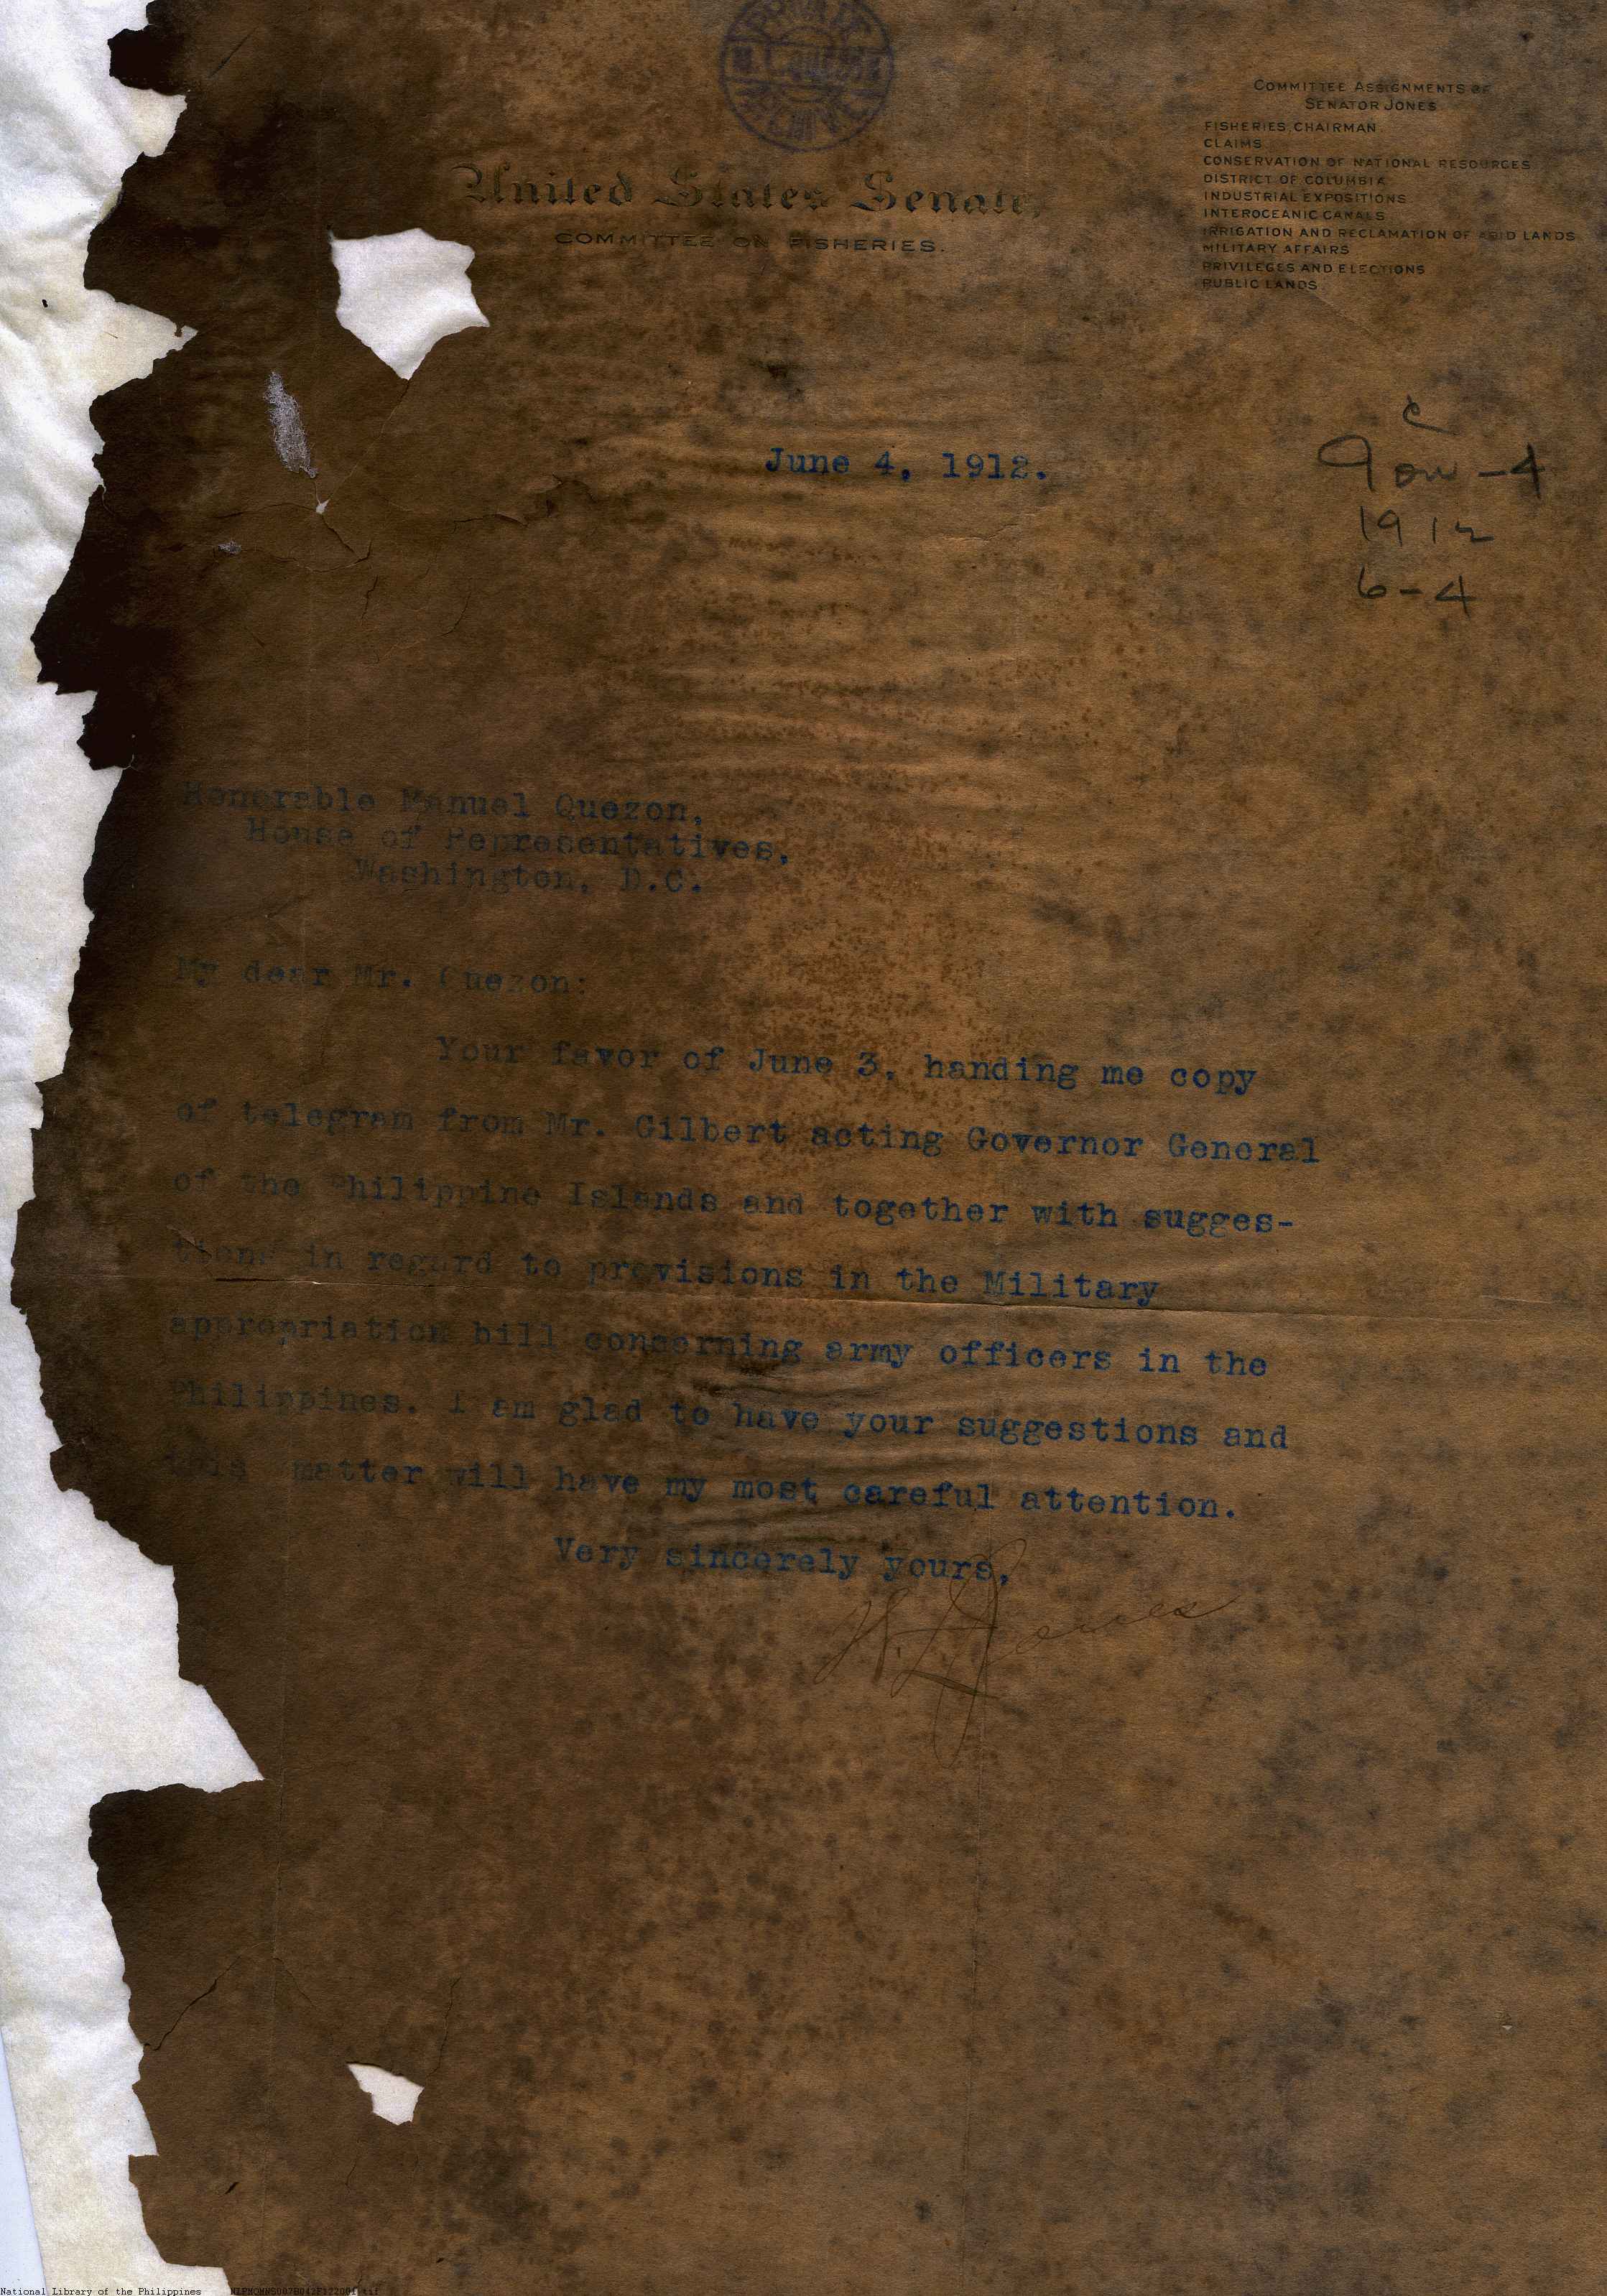 COMMITTEE ASSIGNMENTS OF
SENATOR JONES
FISHERIES, CHAIRMAN
CLAIMS
CONSERVATION OF NATIONAL RESOURCES
DISTRICT OF COLUMBIA
INDUSTRIAL EXPOSITIONS
INTEROCEANIC CANALS
IRRIGATION AND RECLAMATION OF ARID LANDS
MILITARY AFFAIRS
PRIVILEGES AND ELECTIONS
PUBLIC LANDS
United States Senate,
COMMITTEE ON FISHERIES.
June 4, 1912.
C
-4
1912
6-4
Honorable Manuel Quezon,
House of Representatives,
Washington, D.C.
My dear Mr. Quezon:
Your favor of June 3, handing me copy
of telegram from Mr. Gilbert acting Governor General
of the Philippine Islands and together with sugges-
tions in regard to provisions in the Military
appropriation bill concerning army officers in the
Philippines. I am glad to have your suggestions and
this matter will have my most careful attention.
Very sincerely yours,
W. L. Jones
National Library of the Philippines